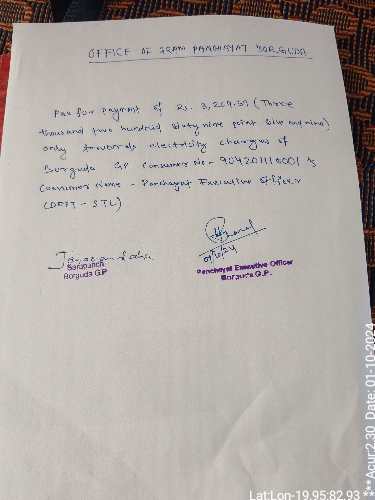 OFFICE OF GRAM PANCHAYAT BORGUDA
Pass for payment of Rs. 3,269.59 (Three
thousand two hundred sixty nine point five and nine)
only towards electricity charges of
Borguda GP Consumer No - 904201110001 &
Consumer Name - Panchayat Executive Officer
(DEPT - STL)
Sarapanch
Borguda G.P
01/10/24
Panchayat Executive Officer
Borguda G.P.
Lat:Lon-19.95:82.93
***Acur:2.30 Date: 01-10-2024